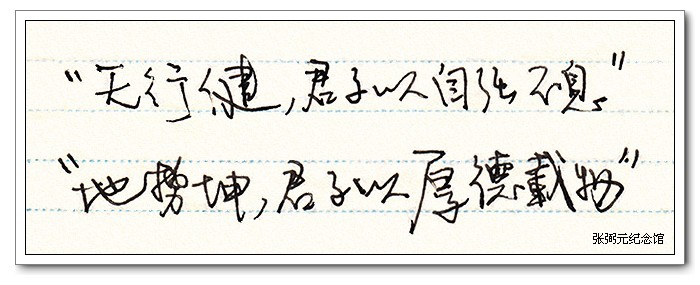 “天行健，君子以自强不息。”
“地势坤，君子以厚德载物”
张弼元纪念馆